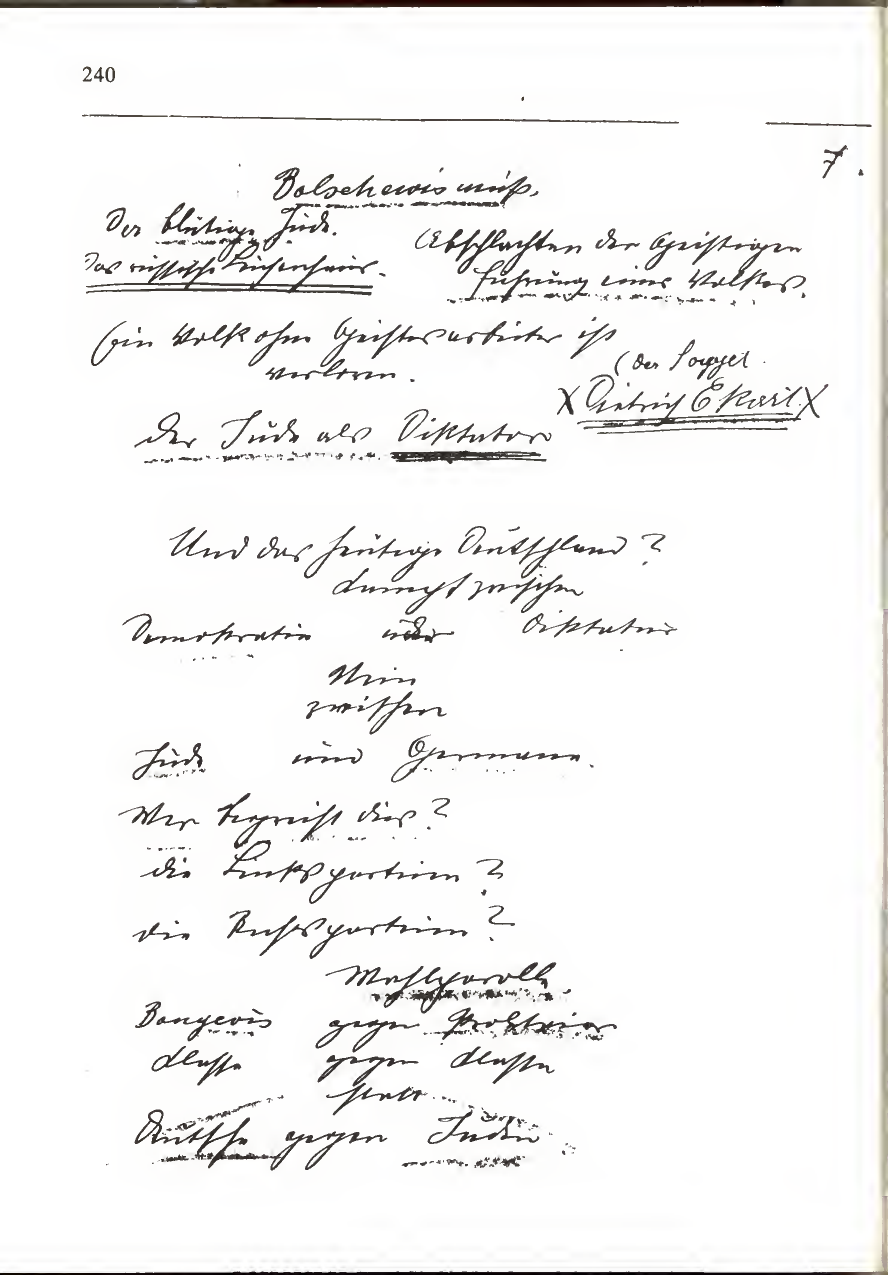 240
7.
Bolschewismus.
Der blutige Jude.
(Abschlachten der Geistigen
Das russische Leichenhaus.
Führung eines Volkes.
Ein Volk ohne Geistesarbeiter ist
verloren.
(der
X Dietrich Ekart X
der Jude als Diktator
Und das heutige Deutschland?
Kampf zwischen
Demokratie und Diktatur
Nein
zwischen
Jude und Germane.
Wer begreift dies?
die Linksparteien?
die Rechtsparteien?
Wahlparolle
Bougeois gegen Proletarier
Klasse gegen Klasse
statt
Deutsche gegen Juden